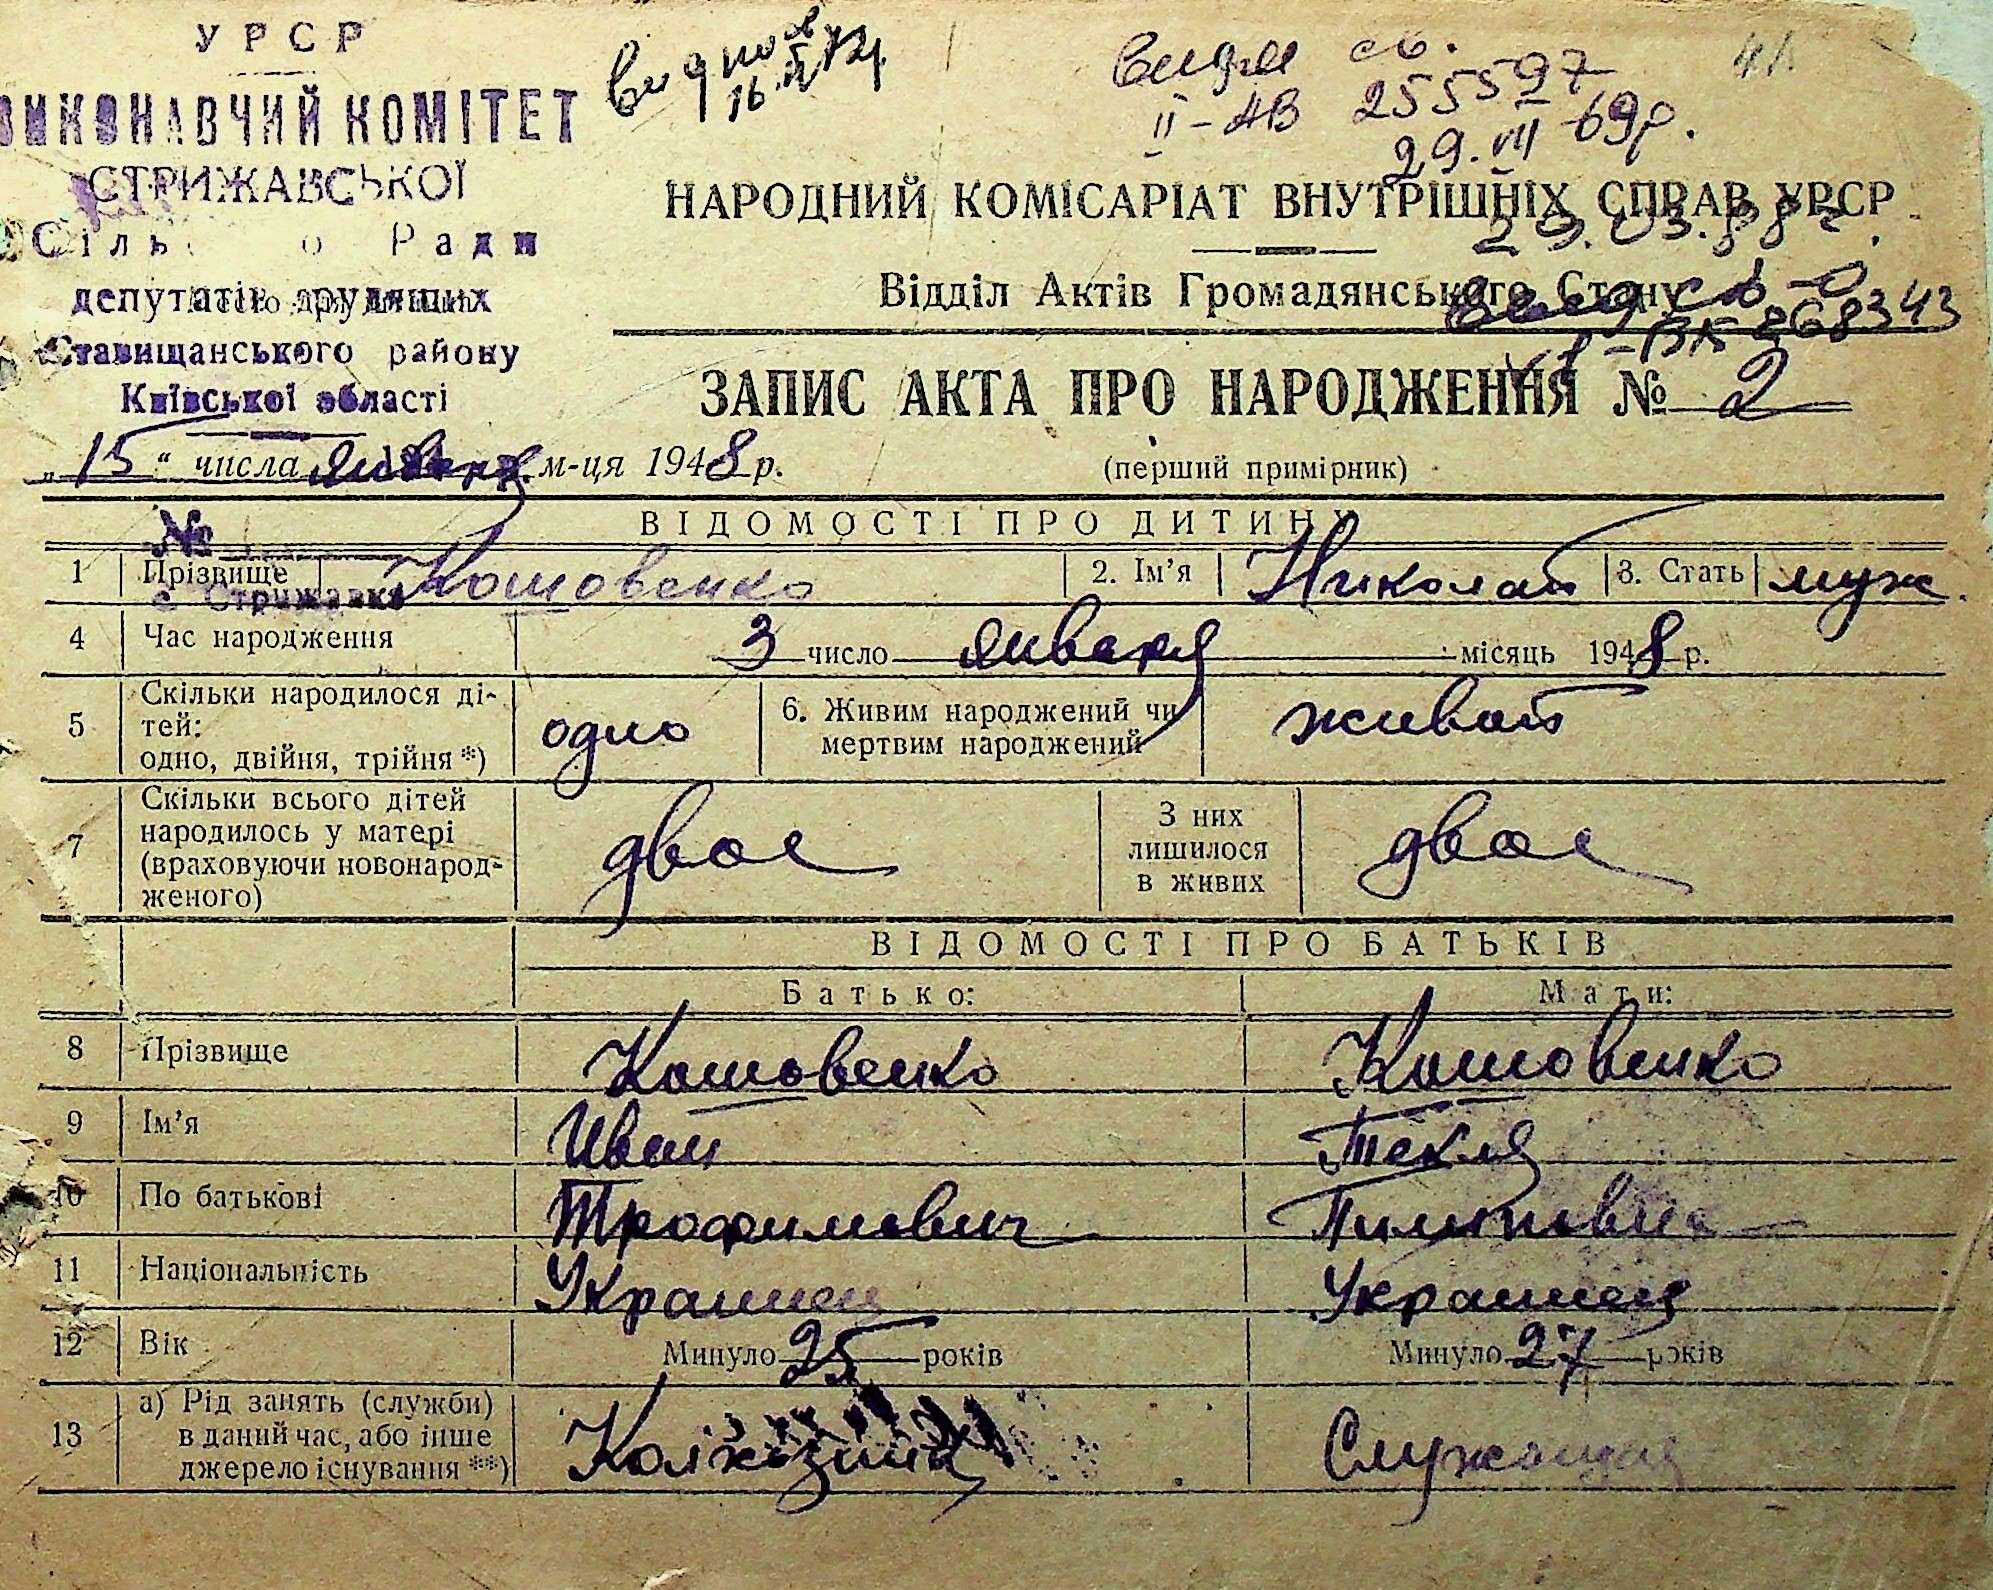 УРСР
ВИКОНАВЧИЙ КОМІТЕТ
СТРИЖАВСЬКОЇ
Сіль о Ради
депутатів трудящих
Ставищанського району
Київської області
№
с Стрижавка
16.
св.
II-АВ 255597
29.VII-69р.
НАРОДНИЙ КОМІСАРІАТ ВНУТРІШНІХ СПРАВ УРСР
29.03.88г.
Відділ Актів Громадянського Стану
268343
ЗАПИС АКТА ПРО НАРОДЖЕННЯ № 2
„15“ числа января м-ця 1948 р.
(перший примірник)
ВІДОМОСТІ ПРО ДИТИНУ
1 Прізвище Кошовенко 2. Ім’я Николай 3. Стать муж.
4 Час народження 3 число января місяць 1948 р.
5 Скільки народилося дітей: одно, двійня, трійня *) одно 6. Живим народжений чи мертвим народжений живой
7 Скільки всього дітей народилось у матері (враховуючи новонародженого) двое З них лишилося в живих двое
ВІДОМОСТІ ПРО БАТЬКІВ
Батько: Мати:
8 Прізвище Кошовенко Кошовенко
9 Ім’я Иван Текля
10 По батькові Трофимович
11 Національність Украинец Украинец
12 Вік Минуло 25 років Минуло 27 років
13 а) Рід занять (служби) в даний час, або інше джерело існування **) Служащая